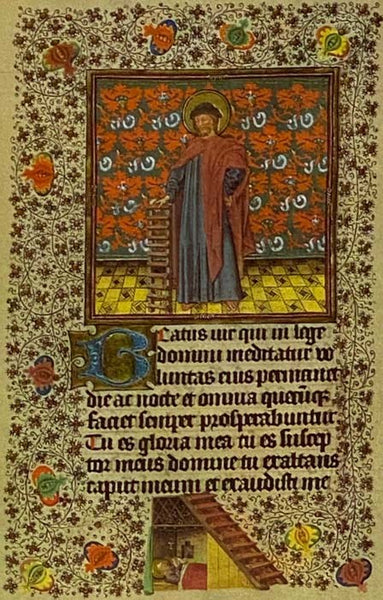 Beatus uir qui in lege
domini meditatur uo
luntas eius permanet
die ac nocte et omnia quecumq
faciet semper prosperabuntur
Tu es gloria mea tu es suscep
tor meus domine tu exaltans
caput meum et exaudisti me